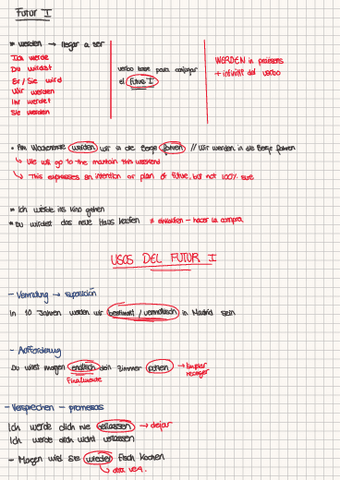 Futur I
* werden → llegar a ser
Ich werde
Du wirdst
Er/Sie wird
Wir werden
Ihr werdet
Sie werden
verbo base para conjugar
el Futur I
WERDEN in präsens
+ infinitiv del verbo
* Am Wochenende werden wir in die Berge fahren // Wir werden in die Berge fahren
↳ We will go to the mantain this weekend
↳ This expresses an intention or plan of future, but not 100% sure
* Ich werde ins Kino gehen
* Du wirdest das neue Haus kaufen ≠ einkaufen - hacer la compra
USOS DEL FUTUR I
- Vermutung → suposición
In 10 Jahren werden wir bestimmt / vermutlich in Madrid sein
- Aufforderung
Du wirst morgen endlich dein Zimmer → limpiar
recoger
Finalmente
- Versprechen - promesas
Ich werde dich nie verlassen → dejar
Ich werde dich nicht verlassen
- Morgen wird Sie wieder Fisch Kochen
↳ otra vez.